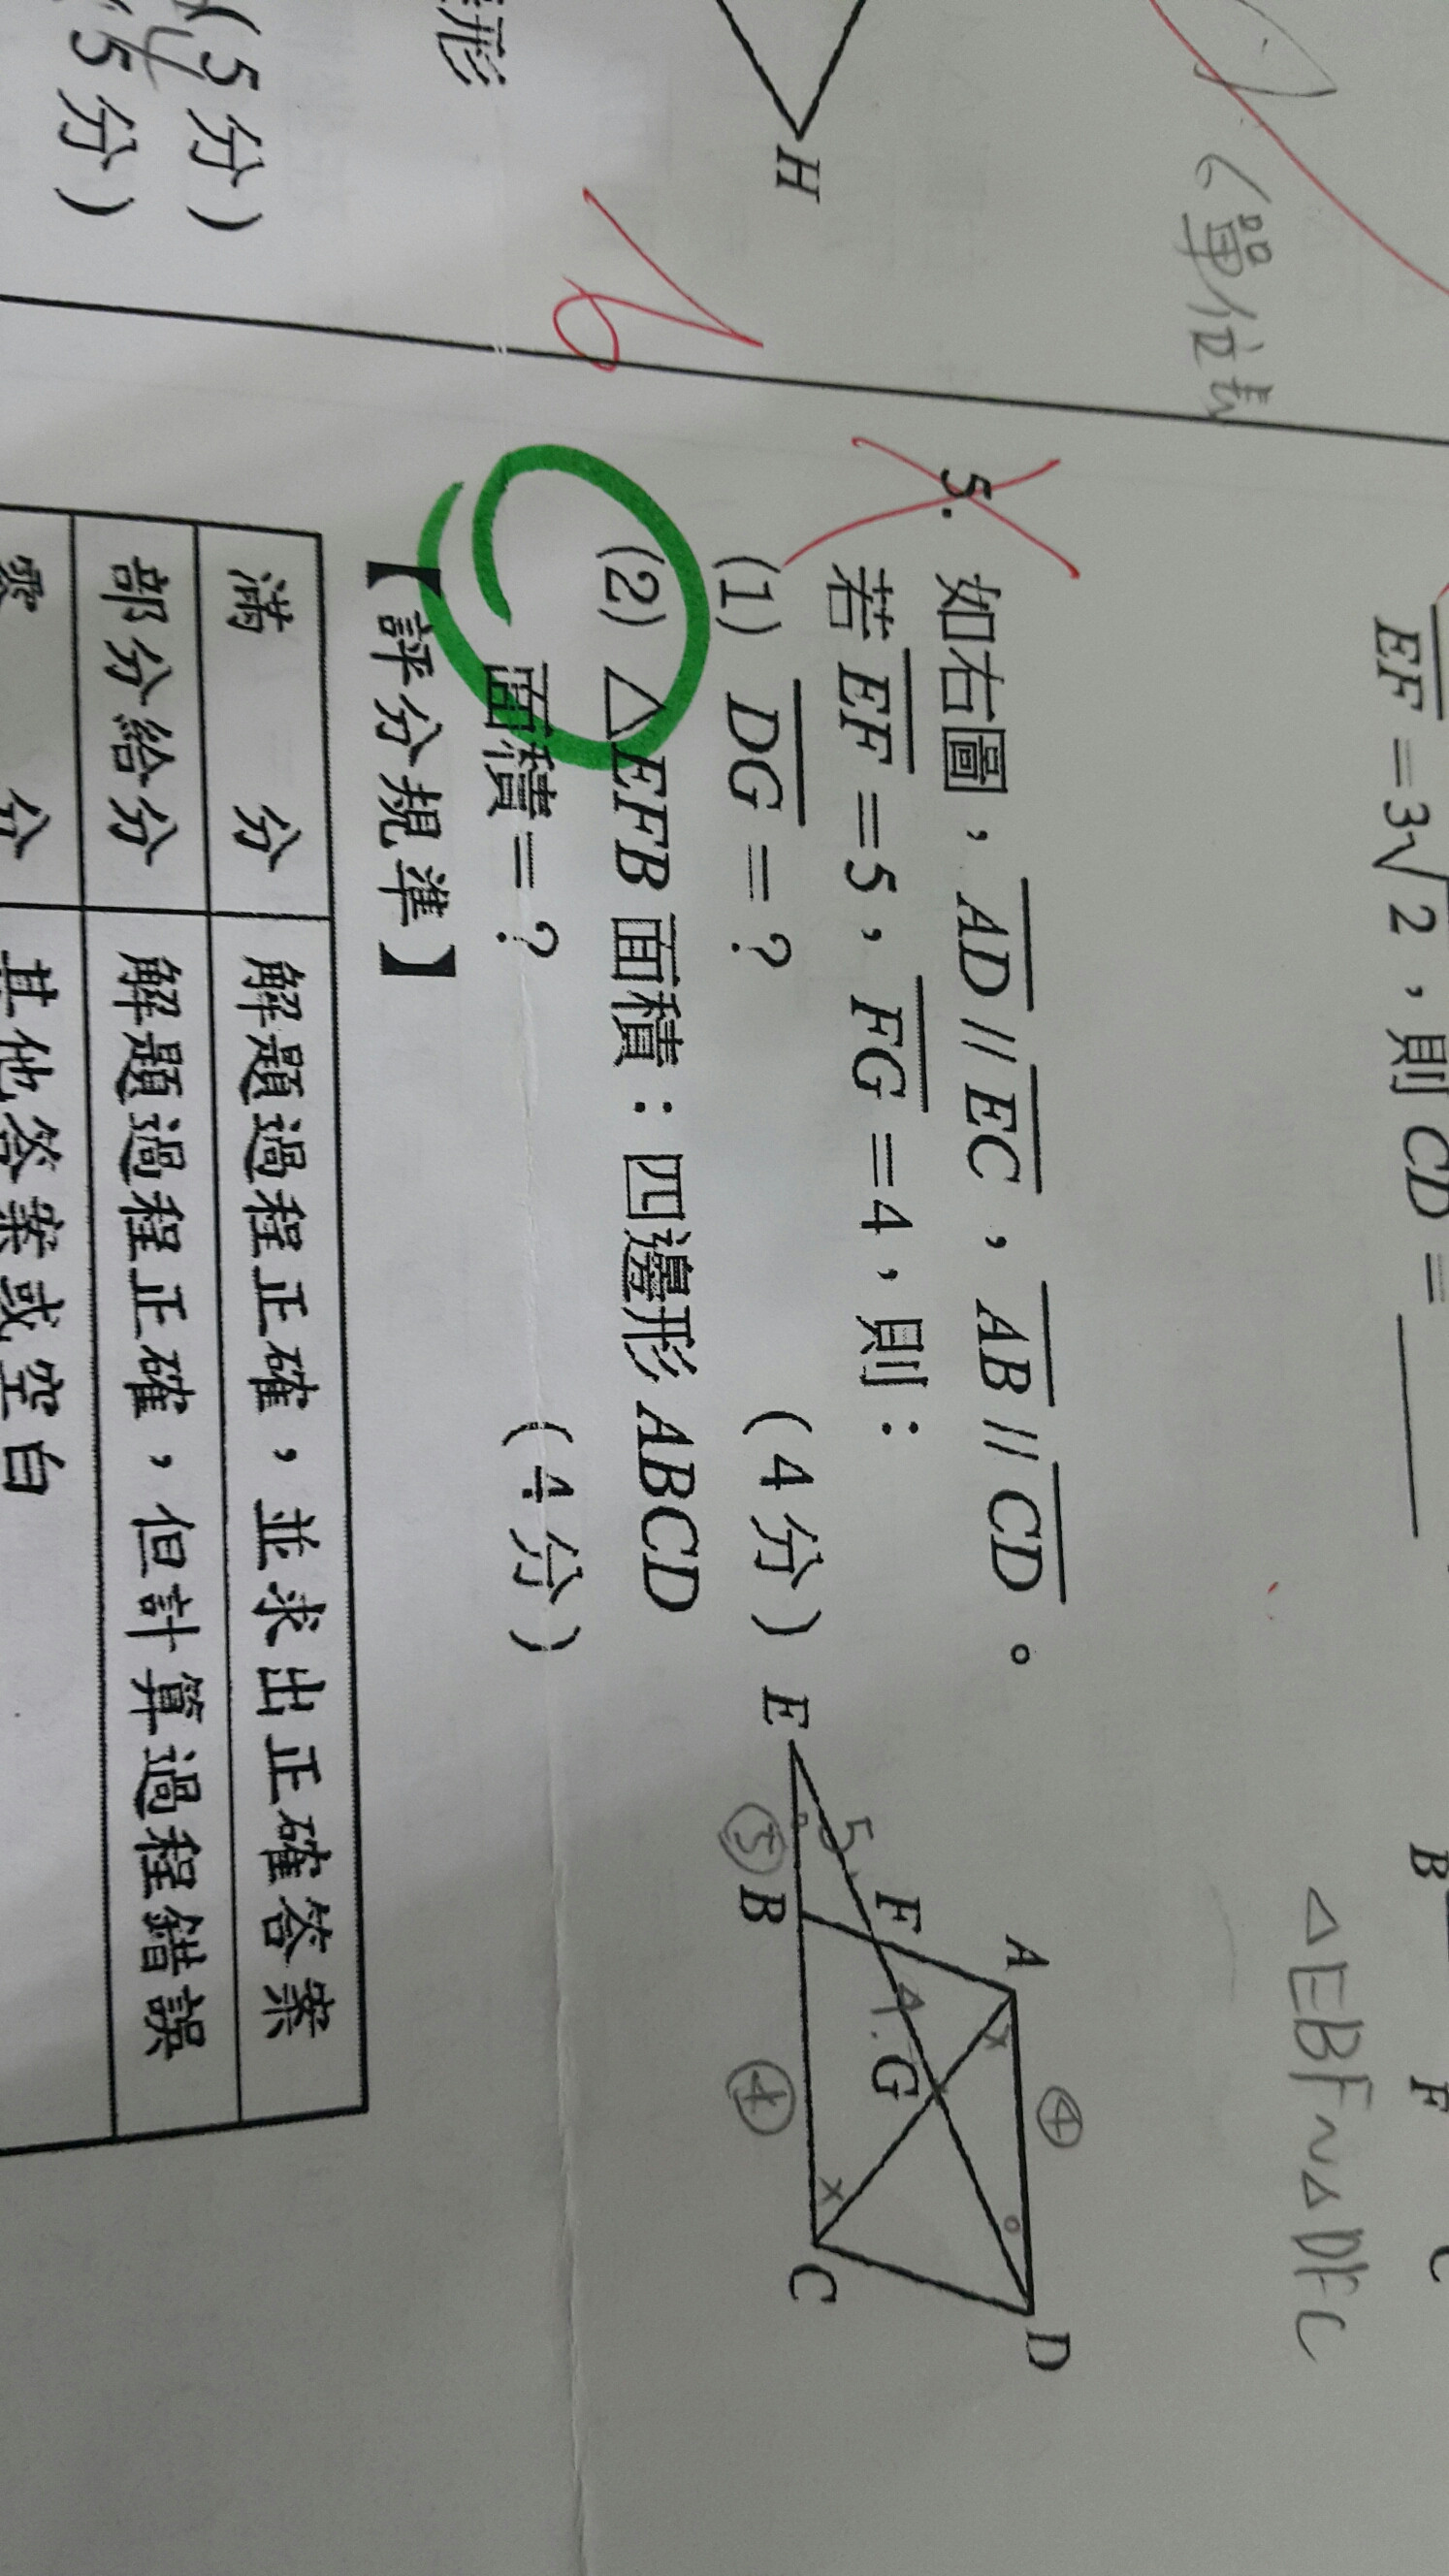 EF=3√2，則CD=
B F C
△EBF~△DFC
5. 如右圖，AD // EC，AB // CD。
若EF=5，FG=4，則：
(1) DG=？ (4分)
(2) △EFB面積：四邊形ABCD
面積=？ (4分)
【評分規準】
滿分 解題過程正確，並求出正確答案
部分給分 解題過程正確，但計算過程錯誤
零分 其他答案或空白
A ④ D
E 5 F 4 G
⑤ B ④ C
H
形
(5分)
5分)